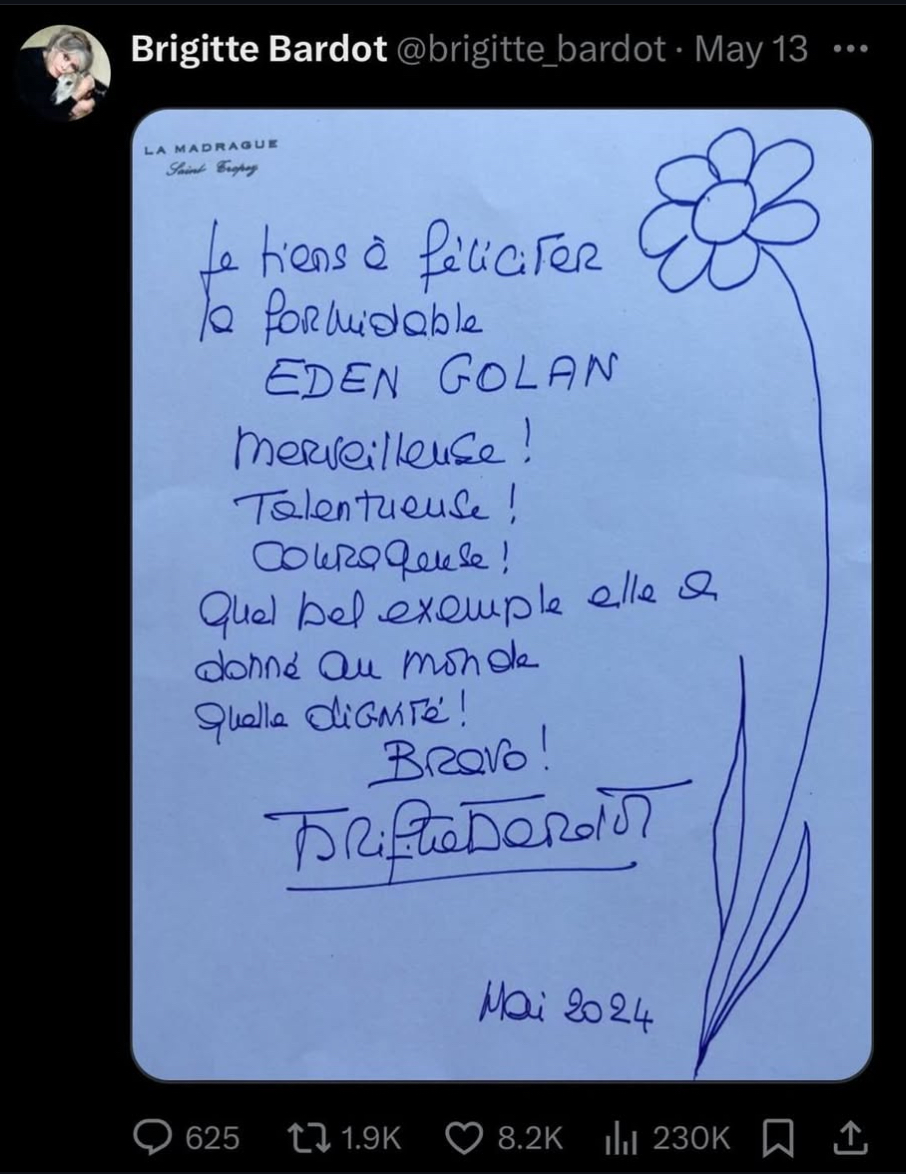 Brigitte Bardot @brigitte_bardot · May 13
LA MADRAGUE
Saint Tropez
Je tiens à féliciter
la formidable
EDEN GOLAN
Merveilleuse !
Talentueuse !
Courageuse !
Quel bel exemple elle a
donné au monde
Quelle dignité !
Bravo !
Brigitte Bardot
Mai 2024
625 1.9K 8.2K 230K